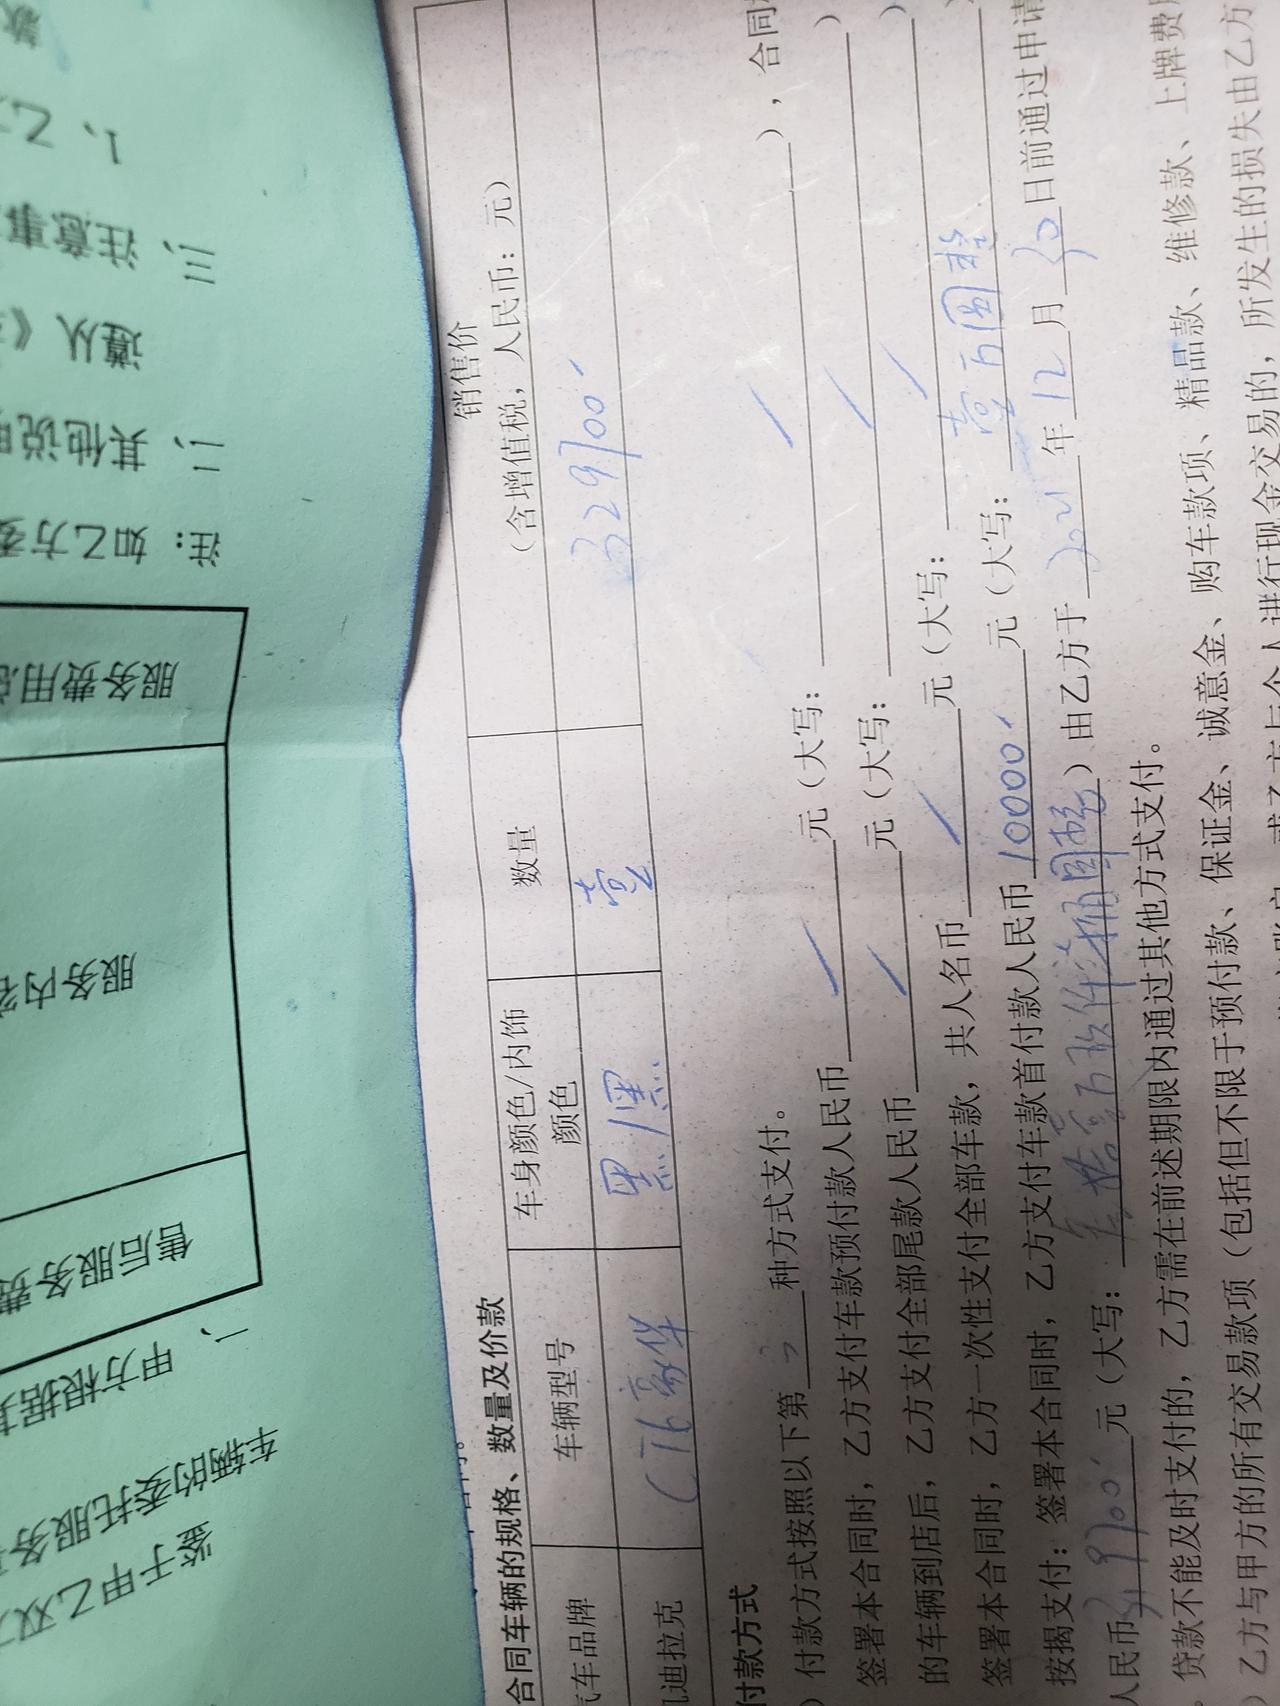 合同车辆的规格、数量及价款
汽车品牌 车辆型号 车身颜色/内饰颜色 数量 销售价（含增值税，人民币：元）
迪拉克 CT6豪华 黑/黑 壹 329700
付款方式
付款方式按照以下第 种方式支付。
签署本合同时，乙方支付车款预付款人民币 / 元（大写： / ），合同
的车辆到店后，乙方支付全部尾款人民币 / 元（大写： / ）
签署本合同时，乙方一次性支付全部车款，共人名币 / 元（大写： / ）
按揭支付：签署本合同时，乙方支付车款首付款人民币10000元（大写：壹万圆整
人民币319700元（大写： 拾壹万玖仟柒佰圆整）由乙方于2021年12月30日前通过申请
贷款不能及时支付的，乙方需在前述期限内通过其他方式支付。
乙方与甲方的所有交易款项（包括但不限于预付款、保证金、诚意金、购车款项、精品款、维修款、上牌费
或乙方与个人进行现金交易的，所发生的损失由乙方
鉴于甲乙双
车辆的委托服务
一、甲方根据
售后服务费
服务内容
服务费用
注：如乙方委
二、其他说明
遵从《
三、注意事
1、乙
款